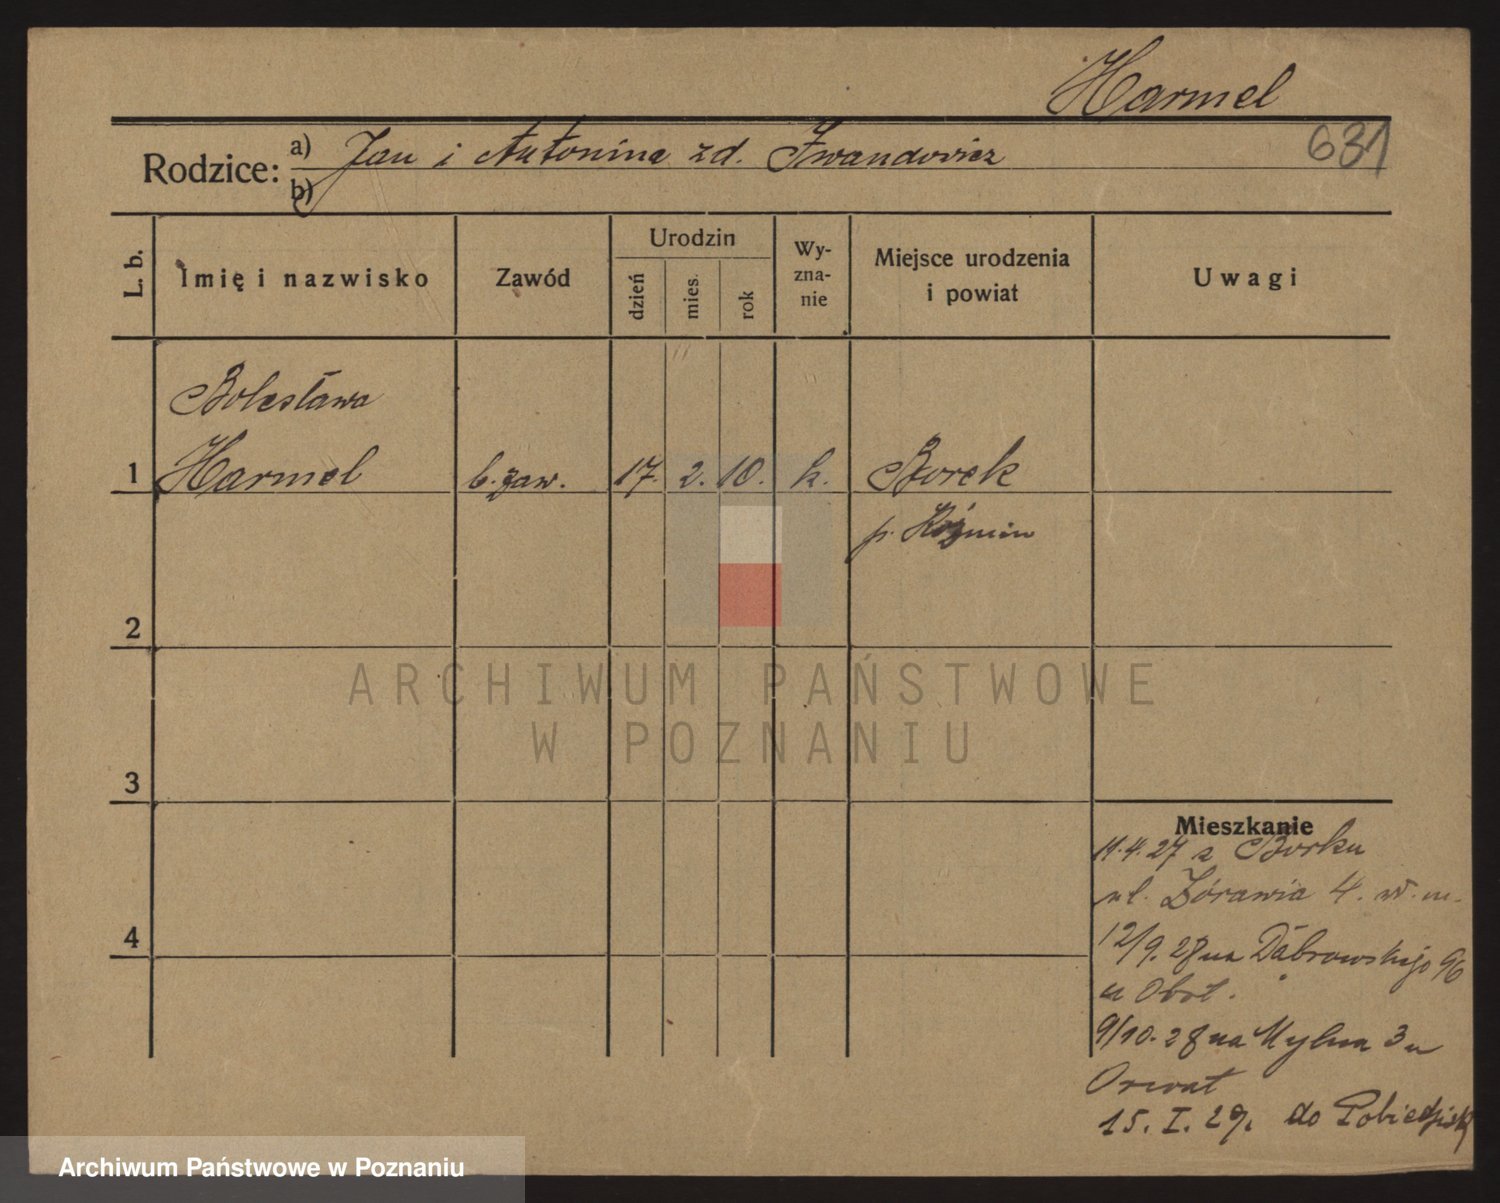 Harmel
631
Rodzice: a) Jan i Antonina zd. Iwandowicz
b)
L. b.
Imię i nazwisko
Zawód
Urodzin
dzień
mies.
rok
Wy-
zna-
nie
Miejsce urodzenia
i powiat
Uwagi
Bolesława
1 Harmel b. zaw. 17. 2. 10. k. Borek
p. Koźmin
2
ARCHIWUM PAŃSTWOWE
W POZNANIU
3
Mieszkanie
11.4.27 z Borku
ul. Żórawia 4. w. m.
4
12/9.28 na Dąbrowskiego 96
u Obst.
9/10.28 na Mylna 3 u
Orwat
15. I. 29. do Pobiedzisk
Archiwum Państwowe w Poznaniu